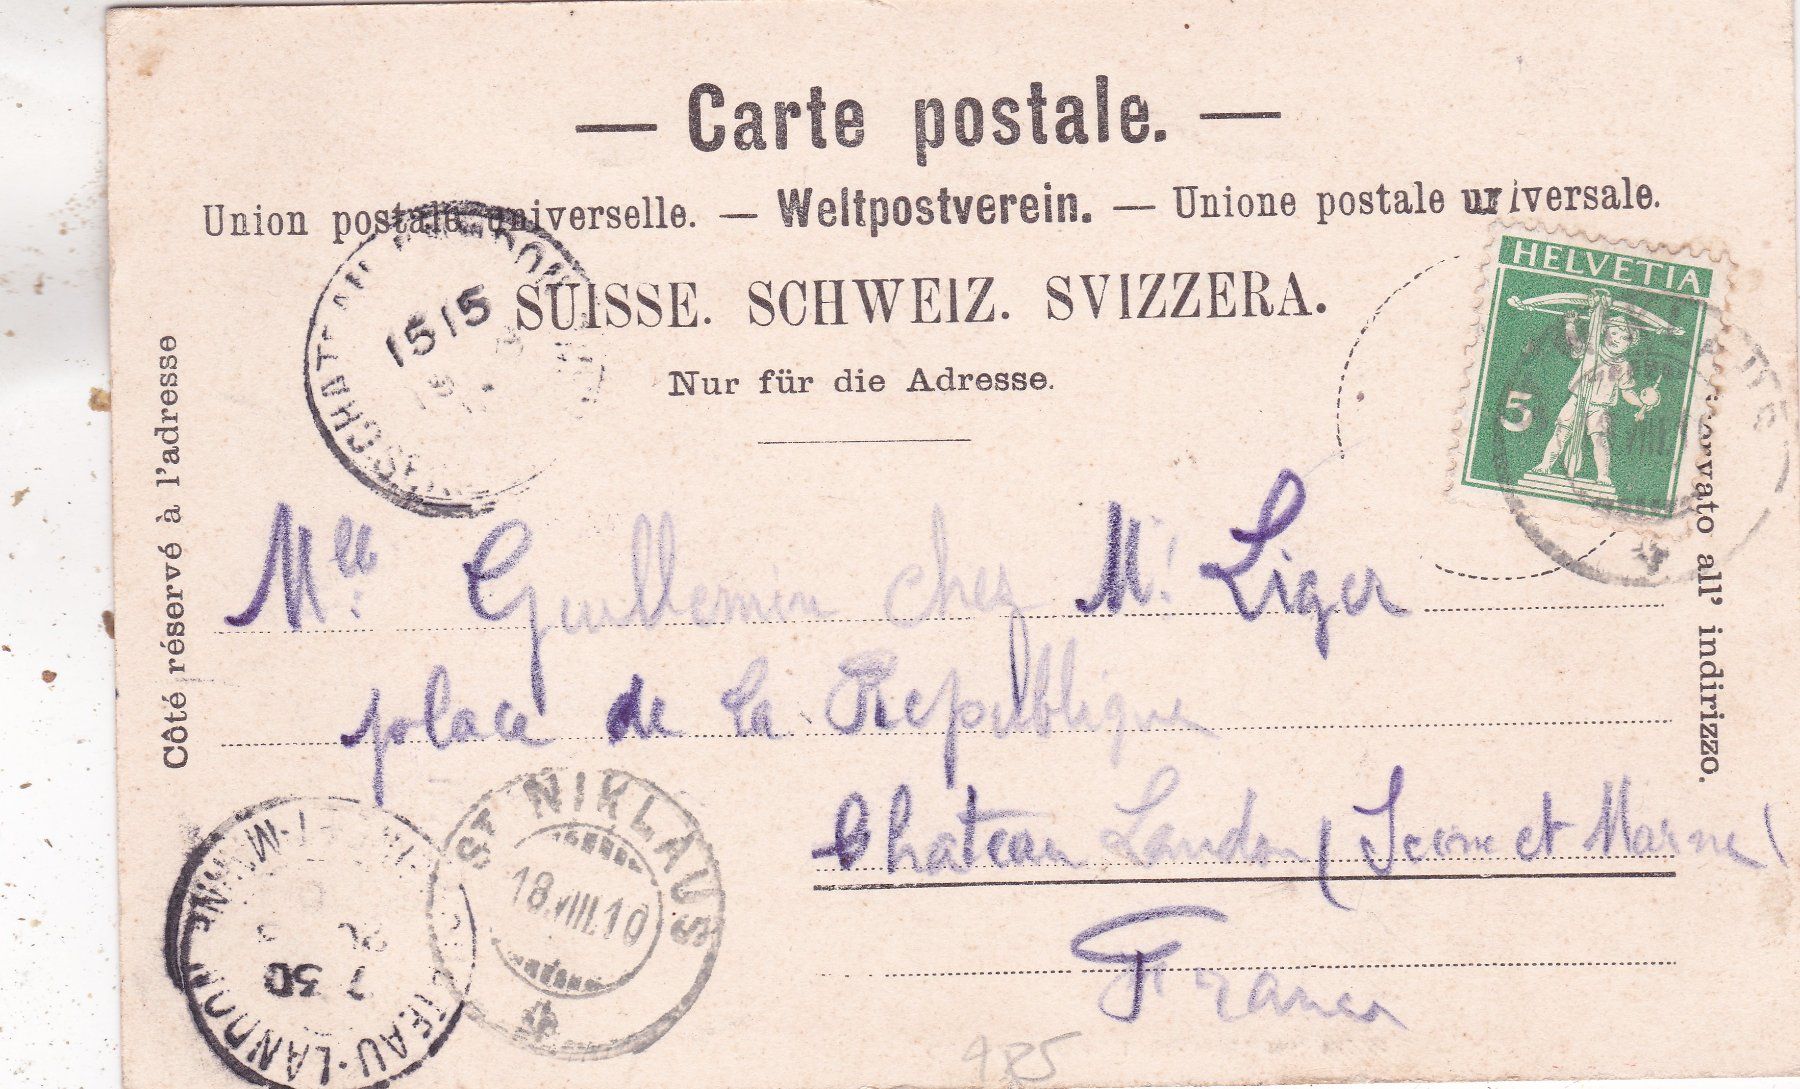 — Carte postale. —
Union postale universelle. — Weltpostverein. — Unione postale universale.
SUISSE. SCHWEIZ. SVIZZERA.
Nur für die Adresse.
Côté réservé à l'adresse
all' indirizzo.
HELVETIA
5
CHATEAU-LANDON
1515
Mlle Guillemin chez Mr Liger
place de la République
Chateau Landon (Seine et Marne)
France
ST NIKLAUS
18.VIII.10
CHATEAU-LANDON
7 30
985